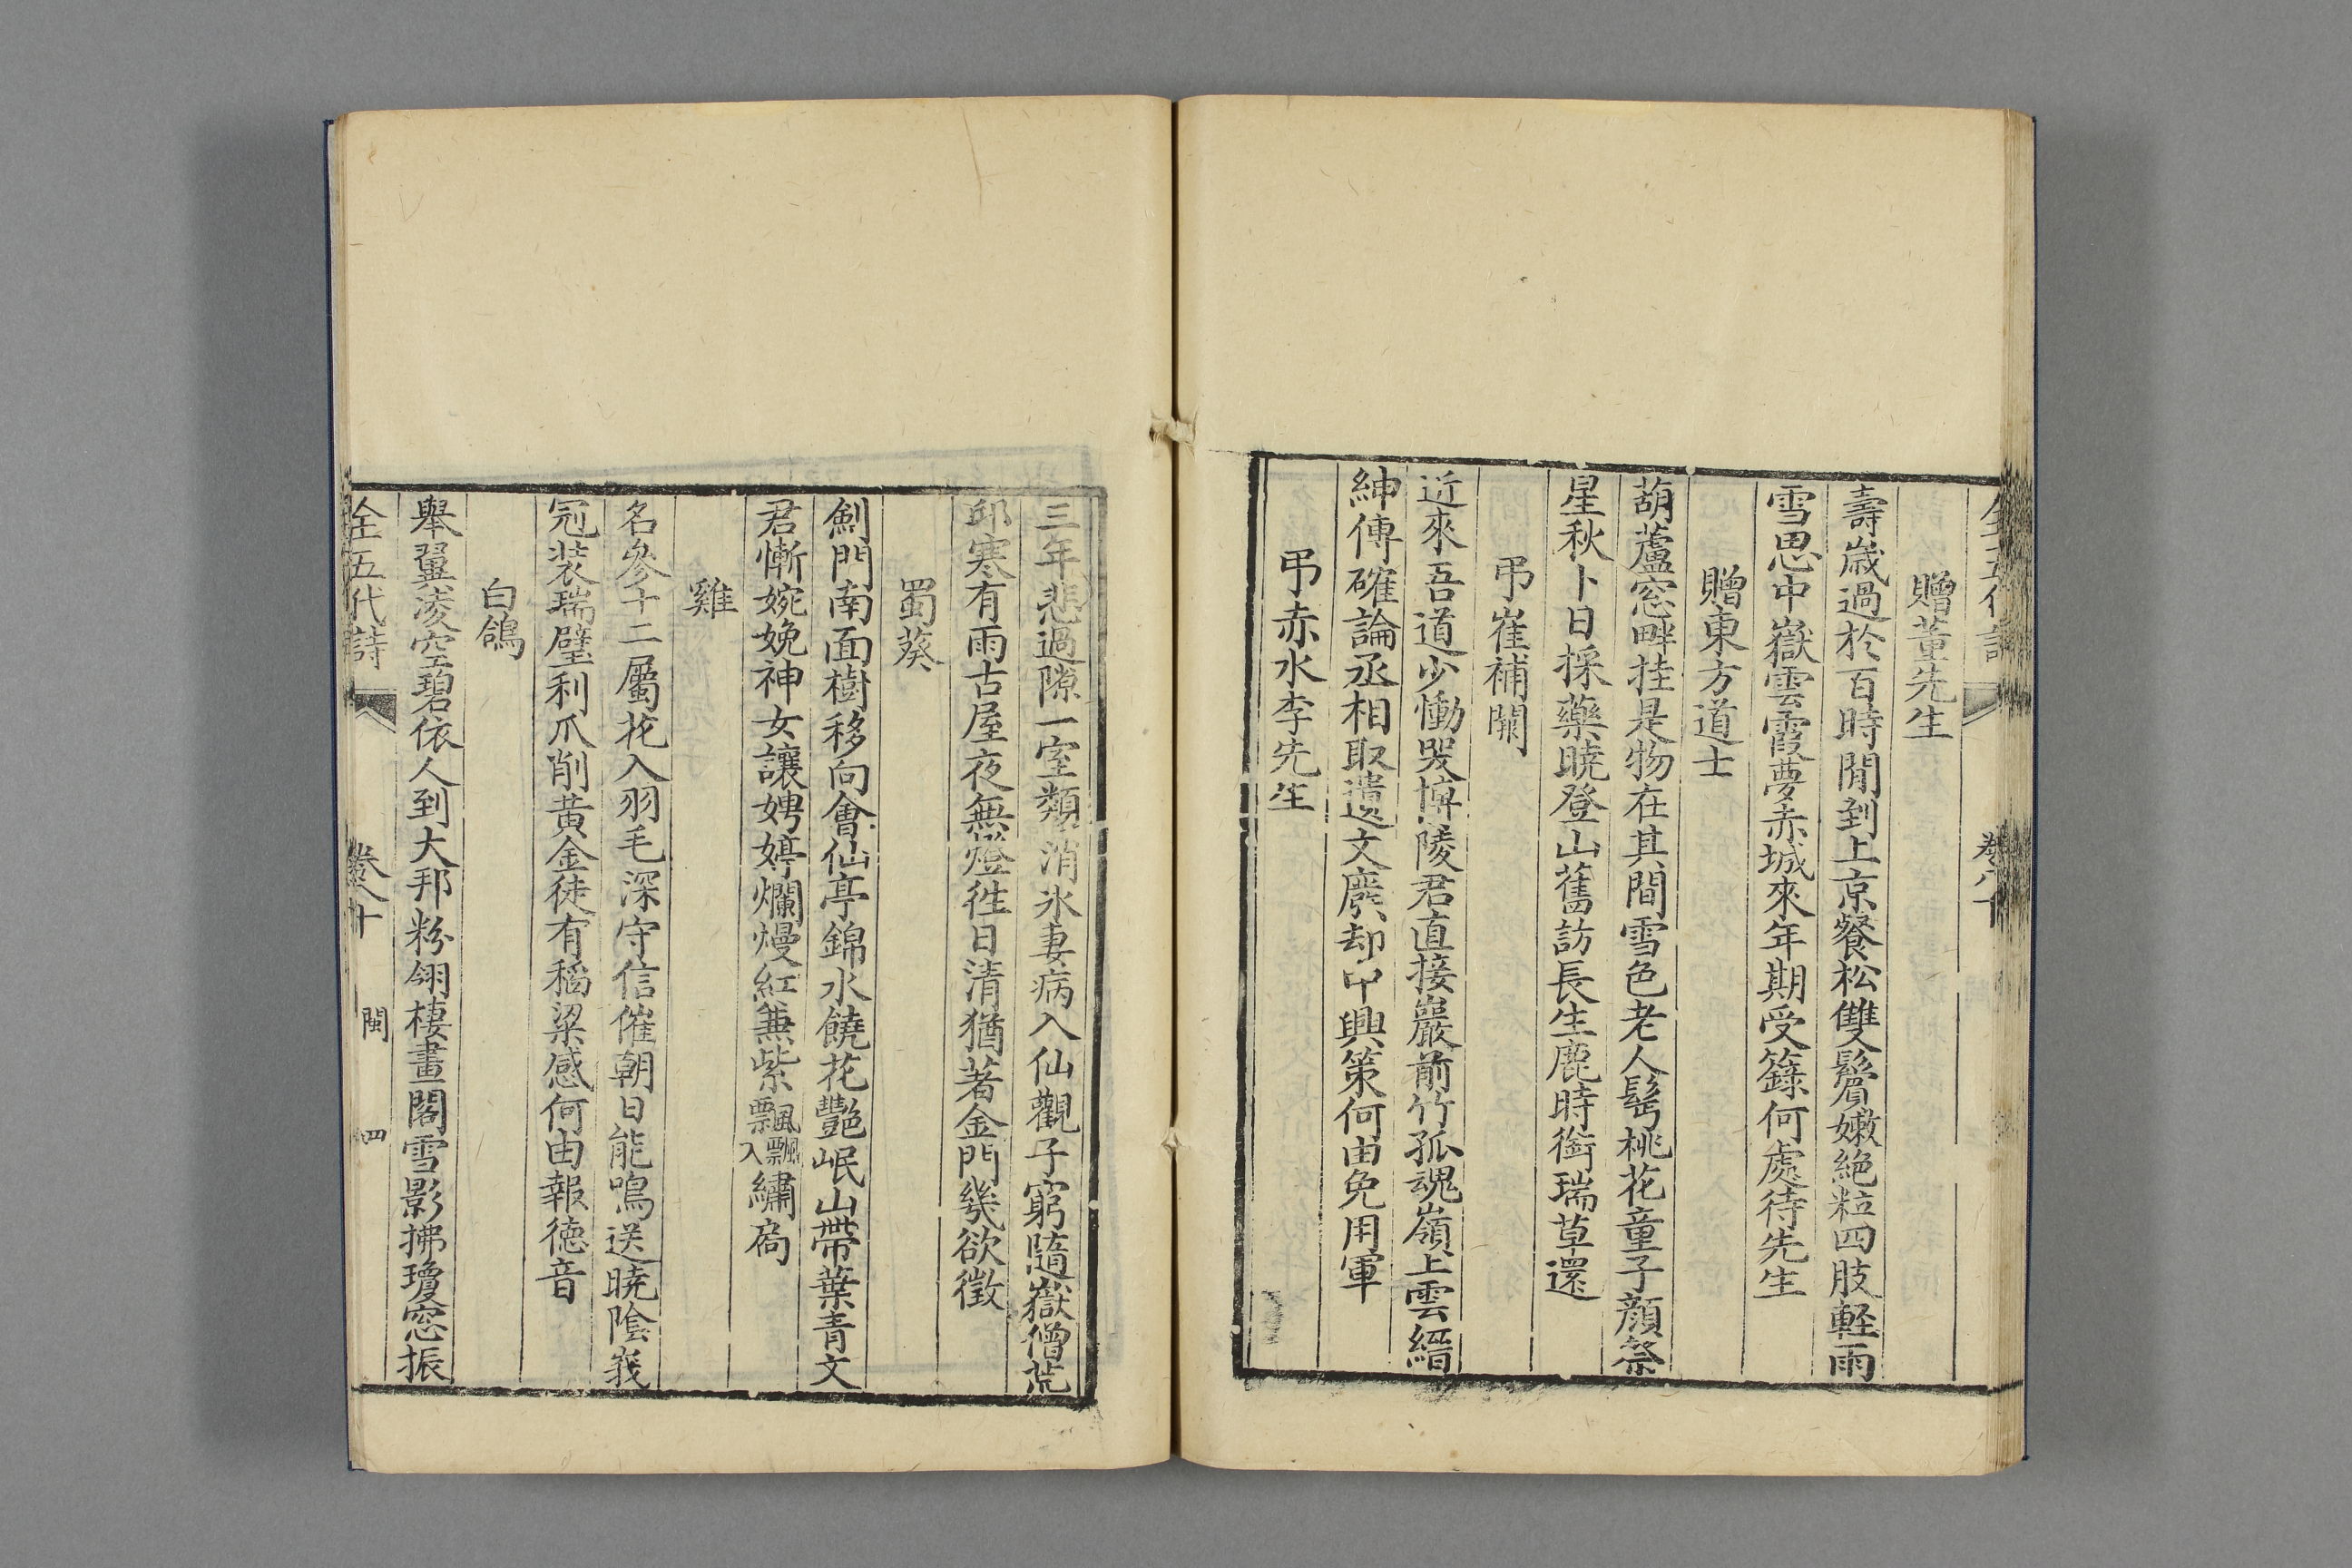 贈董先生
壽歲過於百時閒到上京餐松雙鬢嫩絶粒四肢輕雨
雪思中嶽雲霞夢赤城來年期受籙何處待先生
贈東方道士
葫蘆窓畔挂是物在其間雪色老人髩桃花童子顏祭
星秋卜日採藥曉登山舊訪長生鹿時銜瑞草還
弔崔補闕
近來吾道少慟哭博陵君直接巖前竹孤魂嶺上雲縉
紳傳確論丞相取遺文廢却中興策何由免用軍
弔赤水李先生
三年悲過隙一室類消氷妻病入仙觀子窮隨嶽僧荒
邱寒有雨古屋夜無燈徃日清猶著金門幾欲徵
蜀葵
劍門南面樹移向會仙亭錦水饒花艷岷山帶葉青文
君慚婉娩神女讓娉婷爛熳紅兼紫飄飄入繡扃
雞
名參十二屬花入羽毛深守信催朝日能鳴送曉陰峩
冠裝瑞璧利爪削黃金徒有稻粱感何由報德音
白鴿
舉翼凌空碧依人到大邦粉翎棲畫閣雪影拂瓊窓振
全五代詩 卷八十 閩 四